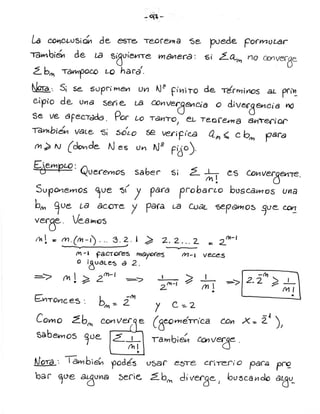 La conclusión de este teorema se puede formular
también de la siguiente manera: si Σ aₘ no converge
Σ bₘ tampoco lo hará.
Nota: Si se suprimen un Nº finito de términos al prin
cipio de una serie la convergencia o divergencia no
se ve afectada. Por lo tanto, el teorema anterior
también vale si sólo se verifica aₘ ≤ c bₘ para
m ≥ N (donde N es un Nº fijo).
Ejemplo: Queremos saber si Σ 1/m! es convergente.
Suponemos que sí y para probarlo buscamos una
bₘ que la acote y para la cual sepamos que con
verge. Veamos
m! = m.(m-1)... 3.2.1 ≥ 2.2...2 = 2^(m-1)
m-1 factores mayores m-1 veces
o iguales a 2.
=> m! ≥ 2^(m-1) => 1/2^(m-1) ≥ 1/m! => 2.2^(-m) ≥ 1/m!
Entonces: bₘ = 2^(-m) y C = 2
Como Σ bₘ converge (geométrica con x = 2^(-1)),
sabemos que Σ 1/m! también converge.
Nota: También podés usar este criterio para pro
bar que alguna serie Σ bₘ diverge, buscando algu